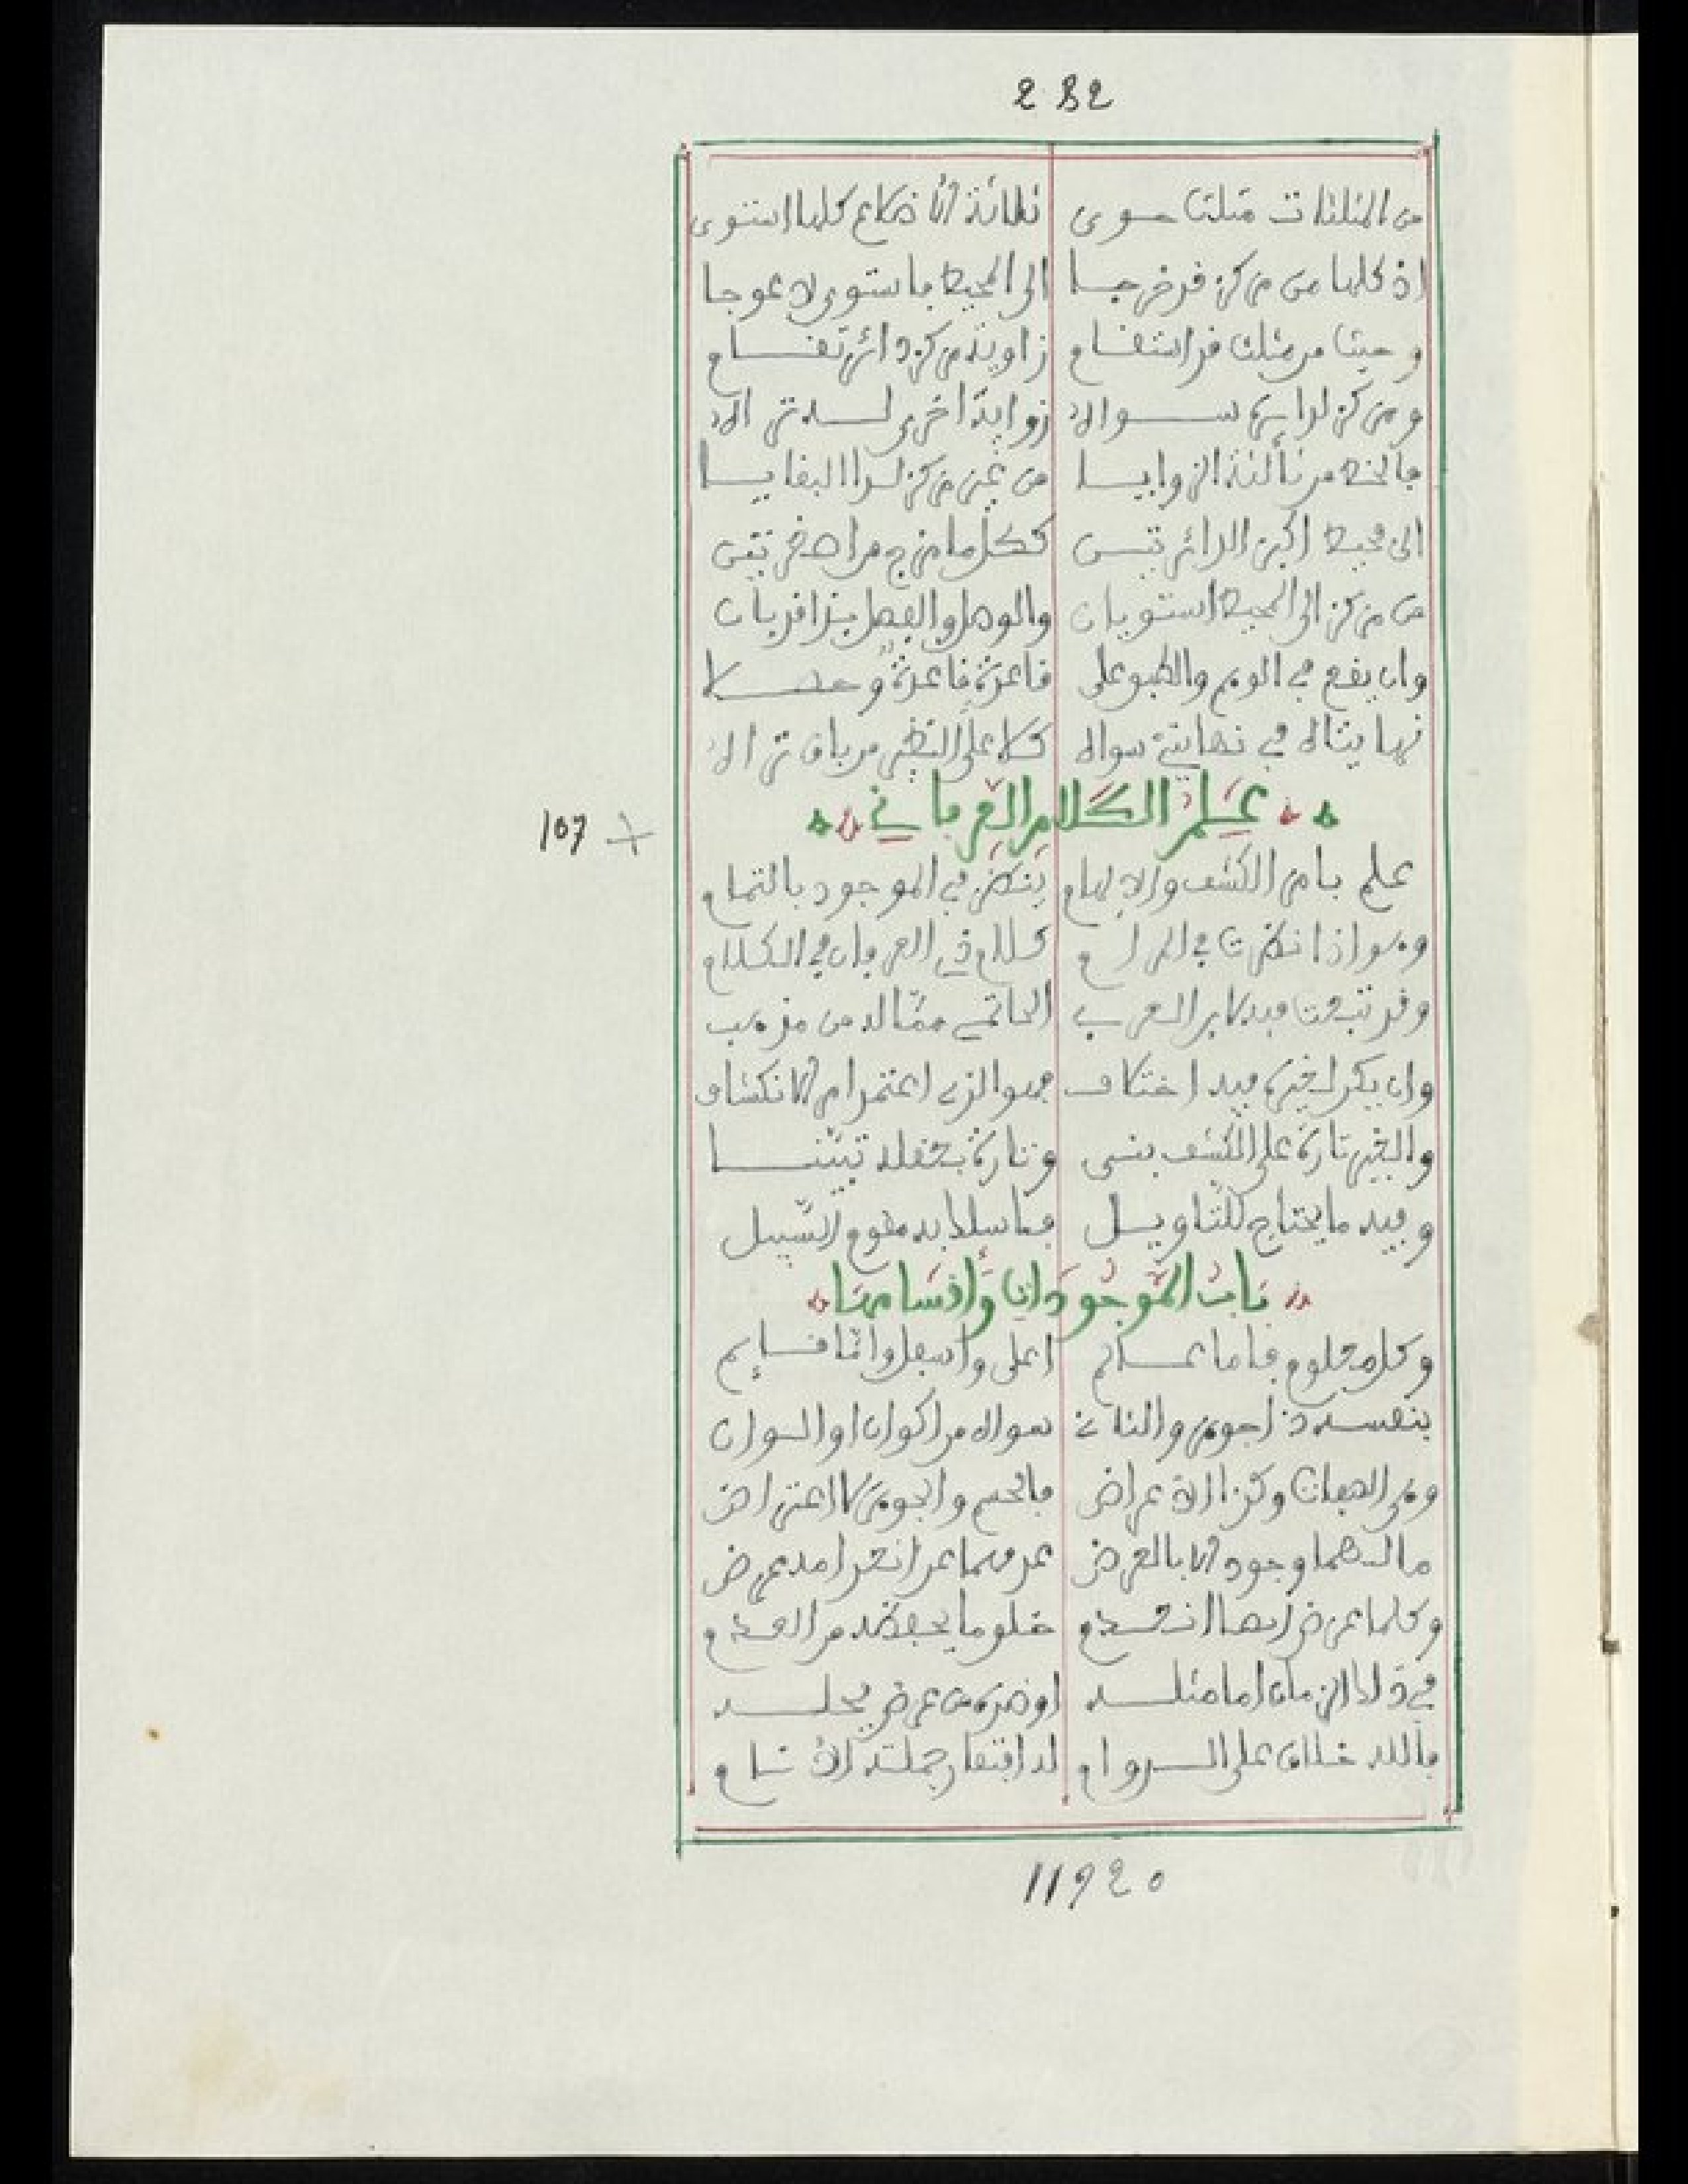 282
من المثلثات مثلث حوى ثلاثة الاضلاع كلها استوى
اذ كلها من مركز قد خرجا الى المحيط باستوى لا عوجا
وحيث من مثلث قد استقام زاوية مركز دائر تقام
ومركز لدائرة سواه زواية اخرى لسه تراه
فالخط من ثالثة الزوايا من غير مركز لدا البقايا
الى محيط اكبر الدائرتين ككل ما خرج من احد تين
من مركز الى المحيط استويان والوصل والفصل بذا قريان
وان يقع في الوهم والطبع على قاعدة قاعدة وحصلا
نهايتاه في نهايتي سواه كلا على التظفر من باق تراه
علم الكلام العرفاني
107
علم بامر الكشف والالهام ينظر في الموجود بالتمام
وهو اذا نظرت في المرام كلام ذي العرفان في الكلام
وقد تبعت فيه كابر العرب الحاتمي فما له من مذهب
وان يكن لغيره فيه اختلاف فهو الذي اعتمد الانكشاف
والغير تارة على الكشف بنى وتارة بعقله تبينا
وفيه ما يحتاج للتاويل فاسلك به مقوم السبيل
باب الموجودات وأقسامها
وكله معلوم فاما عالم اعلى واسفل واما قائم
بنفسه ذا جوهر والثاني سواه من اكوان او الوان
وهي الصفات وكذا الاعراض فالجسم والجوهر لا اعتراض
ما لهما وجود الا بالعرض عدمهما عند انعدامه عرض
وكلما عرض لها انعدم خلو ما يحفظه من العدم
في ذلك الزمان اما مثله او ضده من عرض يحله
فالله خلاق على الدوام له افتقار جملة الانام
11920